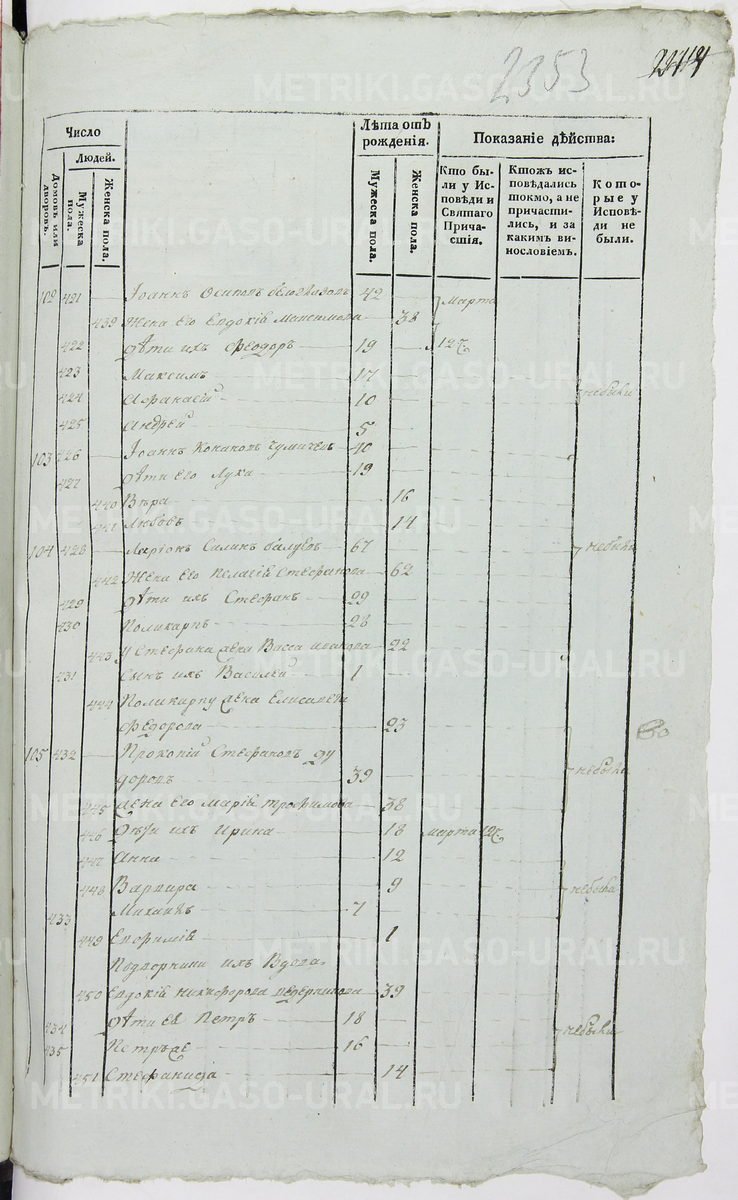 2353
Число
Людей.
Домовъ или дворовъ.
Мужеска пола.
Женска пола.
Лѣта отъ рождения.
Мужеска пола.
Женска пола.
Показаніе дѣйства:
Кто бы-
ли у Ис-
повѣди и
Святаго
Прича-
стія.
Ктожъ ис-
повѣдались
токмо, а не
причасти-
лись, и за
какимъ ви-
нословіемъ.
Кото-
рые у
Исповѣ-
ди не
были.
102 421 Іоаннъ Осиповъ 42 Марта
439 Жена его Евдокія 38
422 Дѣти ихъ Феодоръ 19 12
423 Максимъ 17
424 Афанасій 10 небыли
425 Андрей 5
103 426 Іоаннъ 40
427 Дѣти его Лука 19
440 Вѣра 16
441 Любовь 14
104 428 Ларіонъ 67 небыли
442 Жена его Пелагія Стефанова 62
429 Дѣти ихъ Стефанъ 29
430 Поликарпъ 28
443 У Стефана жена Васса Иванова 22
431 Сынъ ихъ Василей 1
444 Поликарпу жена Елисавета
Федорова 23
105 432 Прокопій Стефановъ
39 небыли
445 жена его Марія Трофимова 38
446 Дѣти ихъ Ирина 18 марта 12
447 Анна 12
448 Варвара 9 небыли
433 Михаилъ 7
449 Евфимія 1
ихъ Вдова
450 Евдокія Никифорова 39
434 Дѣти ея Петръ 18 небыли
435 Петръ же 16
451 Стефанида 14
METRIKI.GASO-URAL.RU